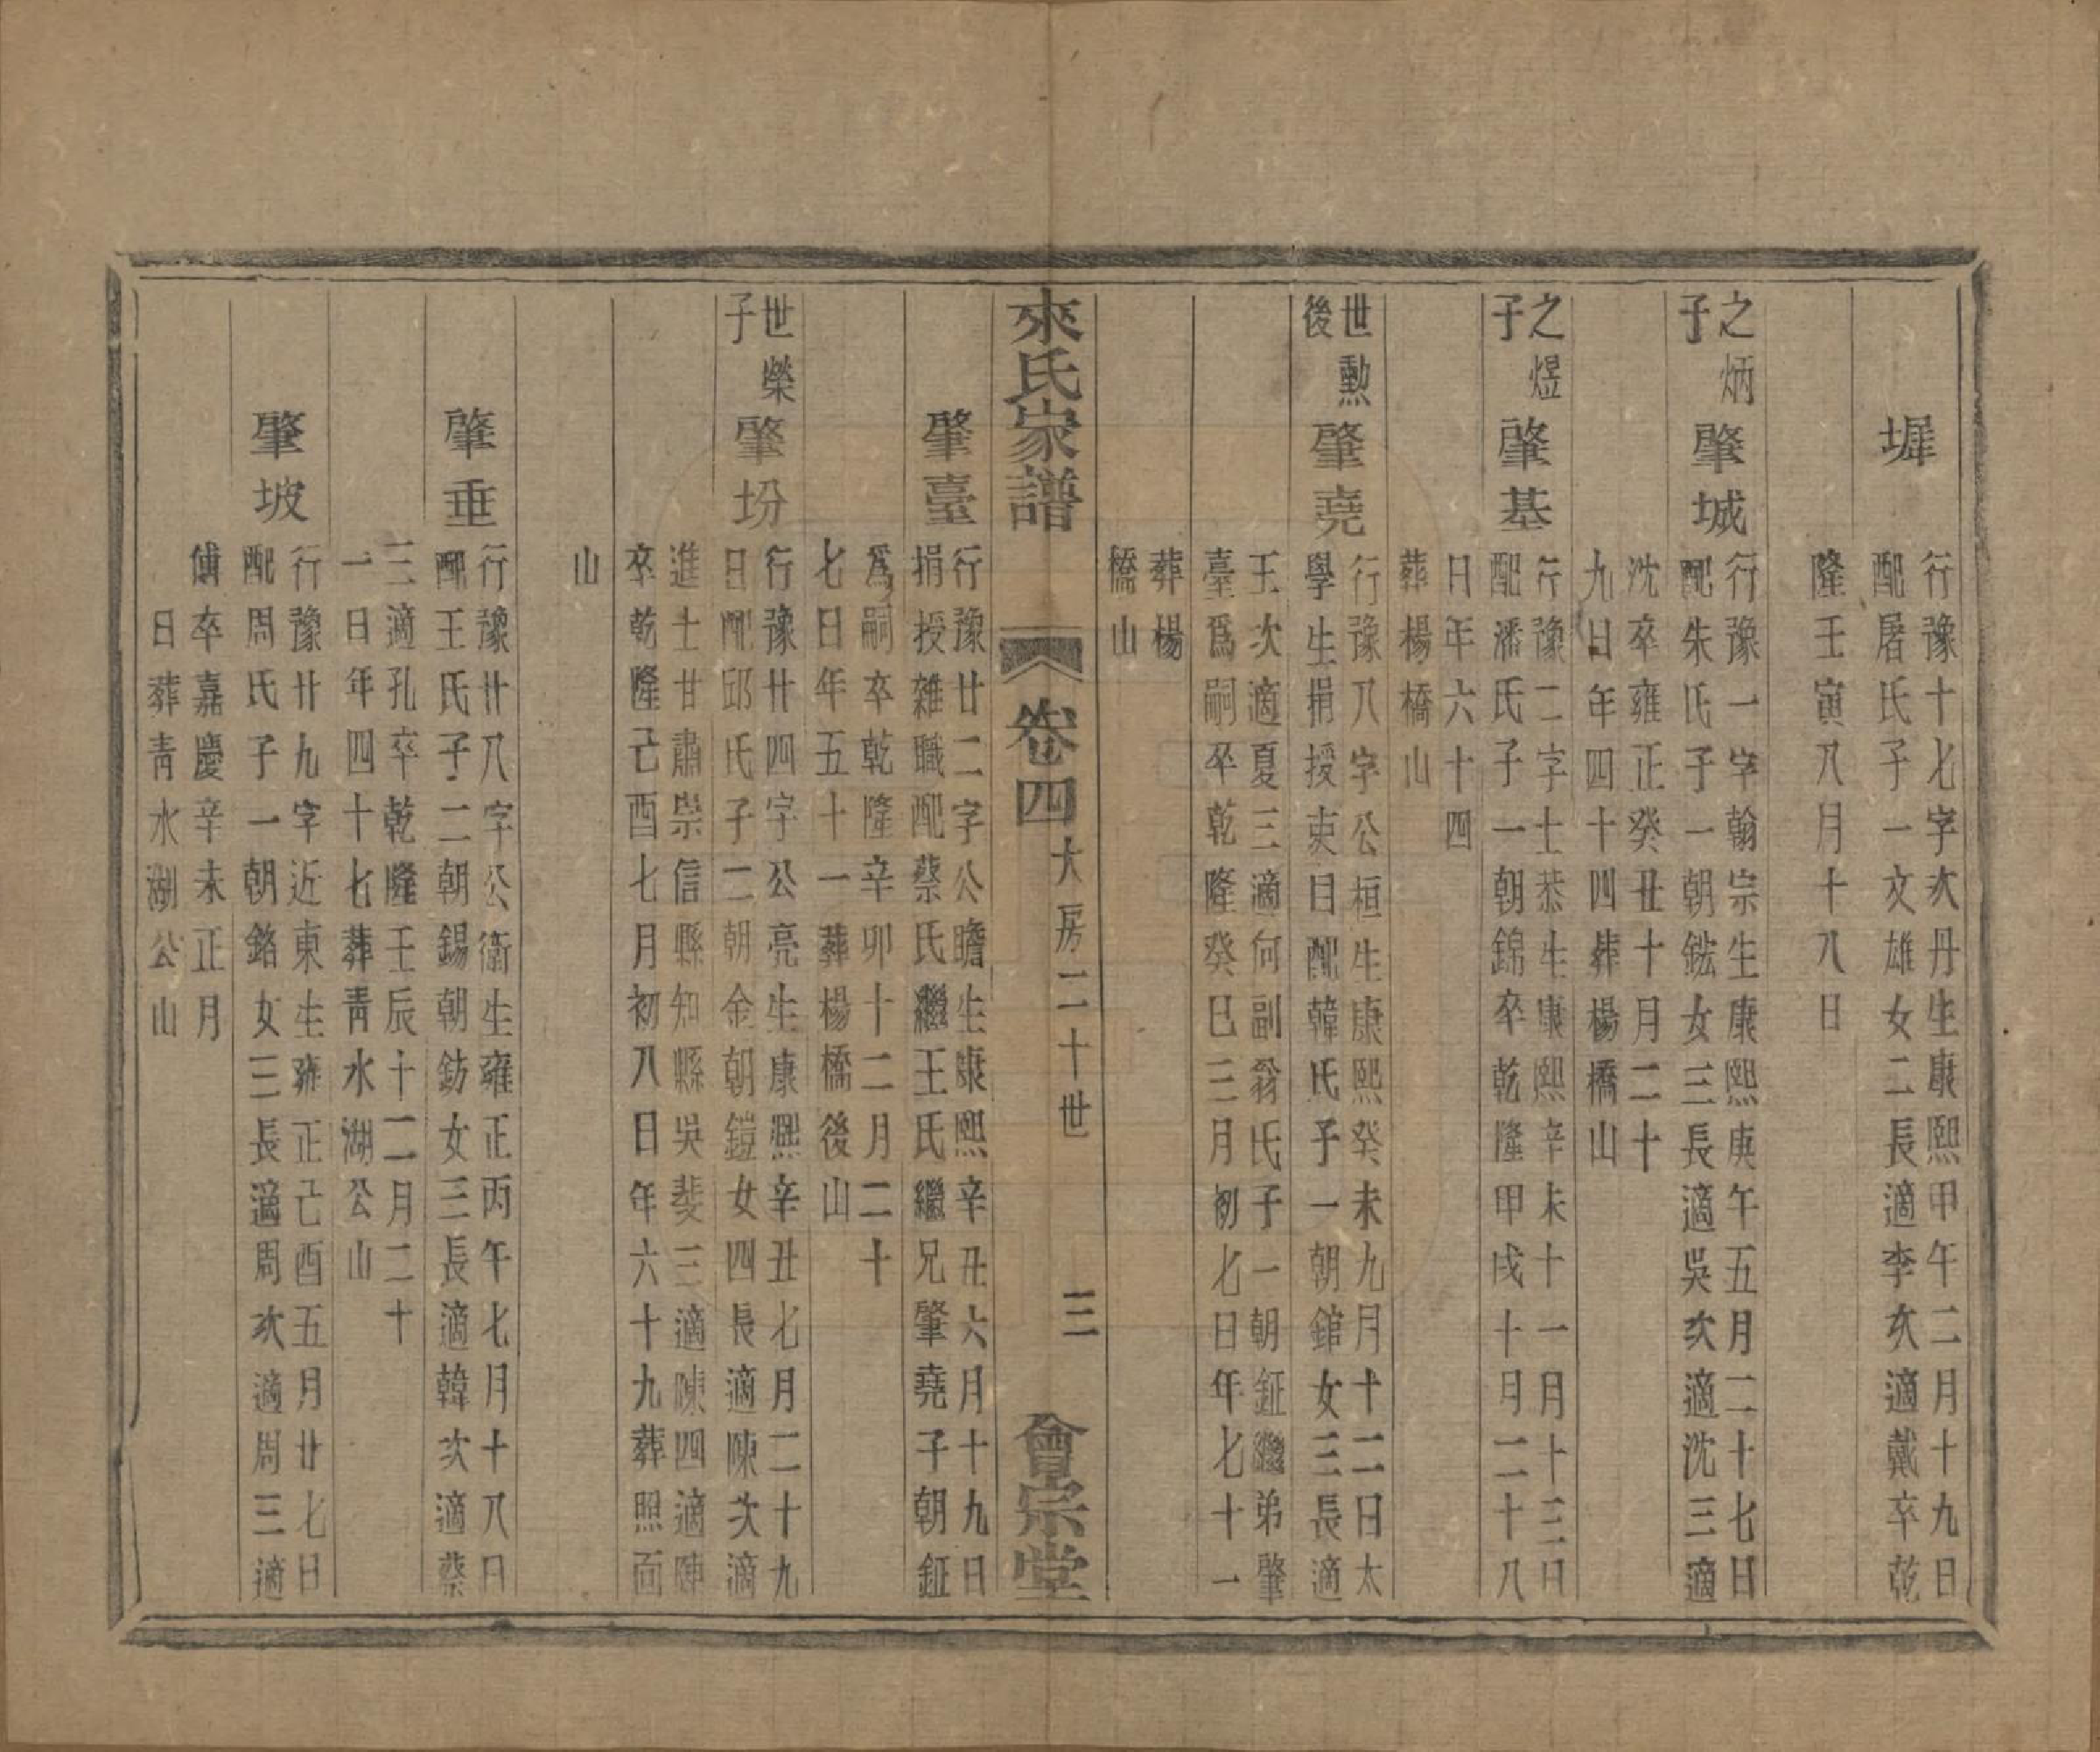 墀
行豫十七字次丹生康熙甲午二月十九日
配屠氏子一文雄女二長適李次適戴卒乾
隆壬寅八月十八日
之炳
子
肇城
行豫一字翰宗生康熙庚午五月二十七日
配朱氏子一朝鋐女三長適吳次適沈三適
沈卒雍正癸丑十月二十
九日年四十四葬楊橋山
之煜
子
肇基
行豫二字士恭生康熙辛未十一月十三日
配潘氏子一朝錦卒乾隆甲戌十月二十八
日年六十四
葬楊橋山
世勲
後
肇堯
行豫八字公桓生康熙癸未九月十二日太
學生捐授吏目配韓氏子一朝錧女三長適
王次適夏三適何副翁氏子一朝鉦繼弟肇
臺爲嗣卒乾隆癸巳三月初七日年七十一
葬楊
橋山
來氏家譜
卷四
大房二十世
三
會宗堂
肇臺
行豫廿二字公瞻生康熙辛丑六月十九日
捐授雜職配蔡氏繼王氏繼兄肇堯子朝鉦
爲嗣卒乾隆辛卯十二月二十
七日年五十一葬楊橋後山
世榮
子
肇坋
行豫廿四字公亮生康熙辛丑七月二十九
日配邱氏子二朝金朝鎧女四長適陳次適
進士甘肅崇信縣知縣吳斐三適陳四適陳
卒乾隆己酉七月初八日年六十九葬照面
山
肇垂
行豫廿八字公衛生雍正丙午七月十八日
配王氏子二朝錫朝鈁女三長適韓次適蔡
三適孔卒乾隆壬辰十二月二十
一日年四十七葬靑水湖公山
肇坡
行豫廿九字近東生雍正己酉五月廿七日
配周氏子一朝鉻女三長適周次適周三適
傅卒嘉慶辛未正月
日葬靑水湖公山